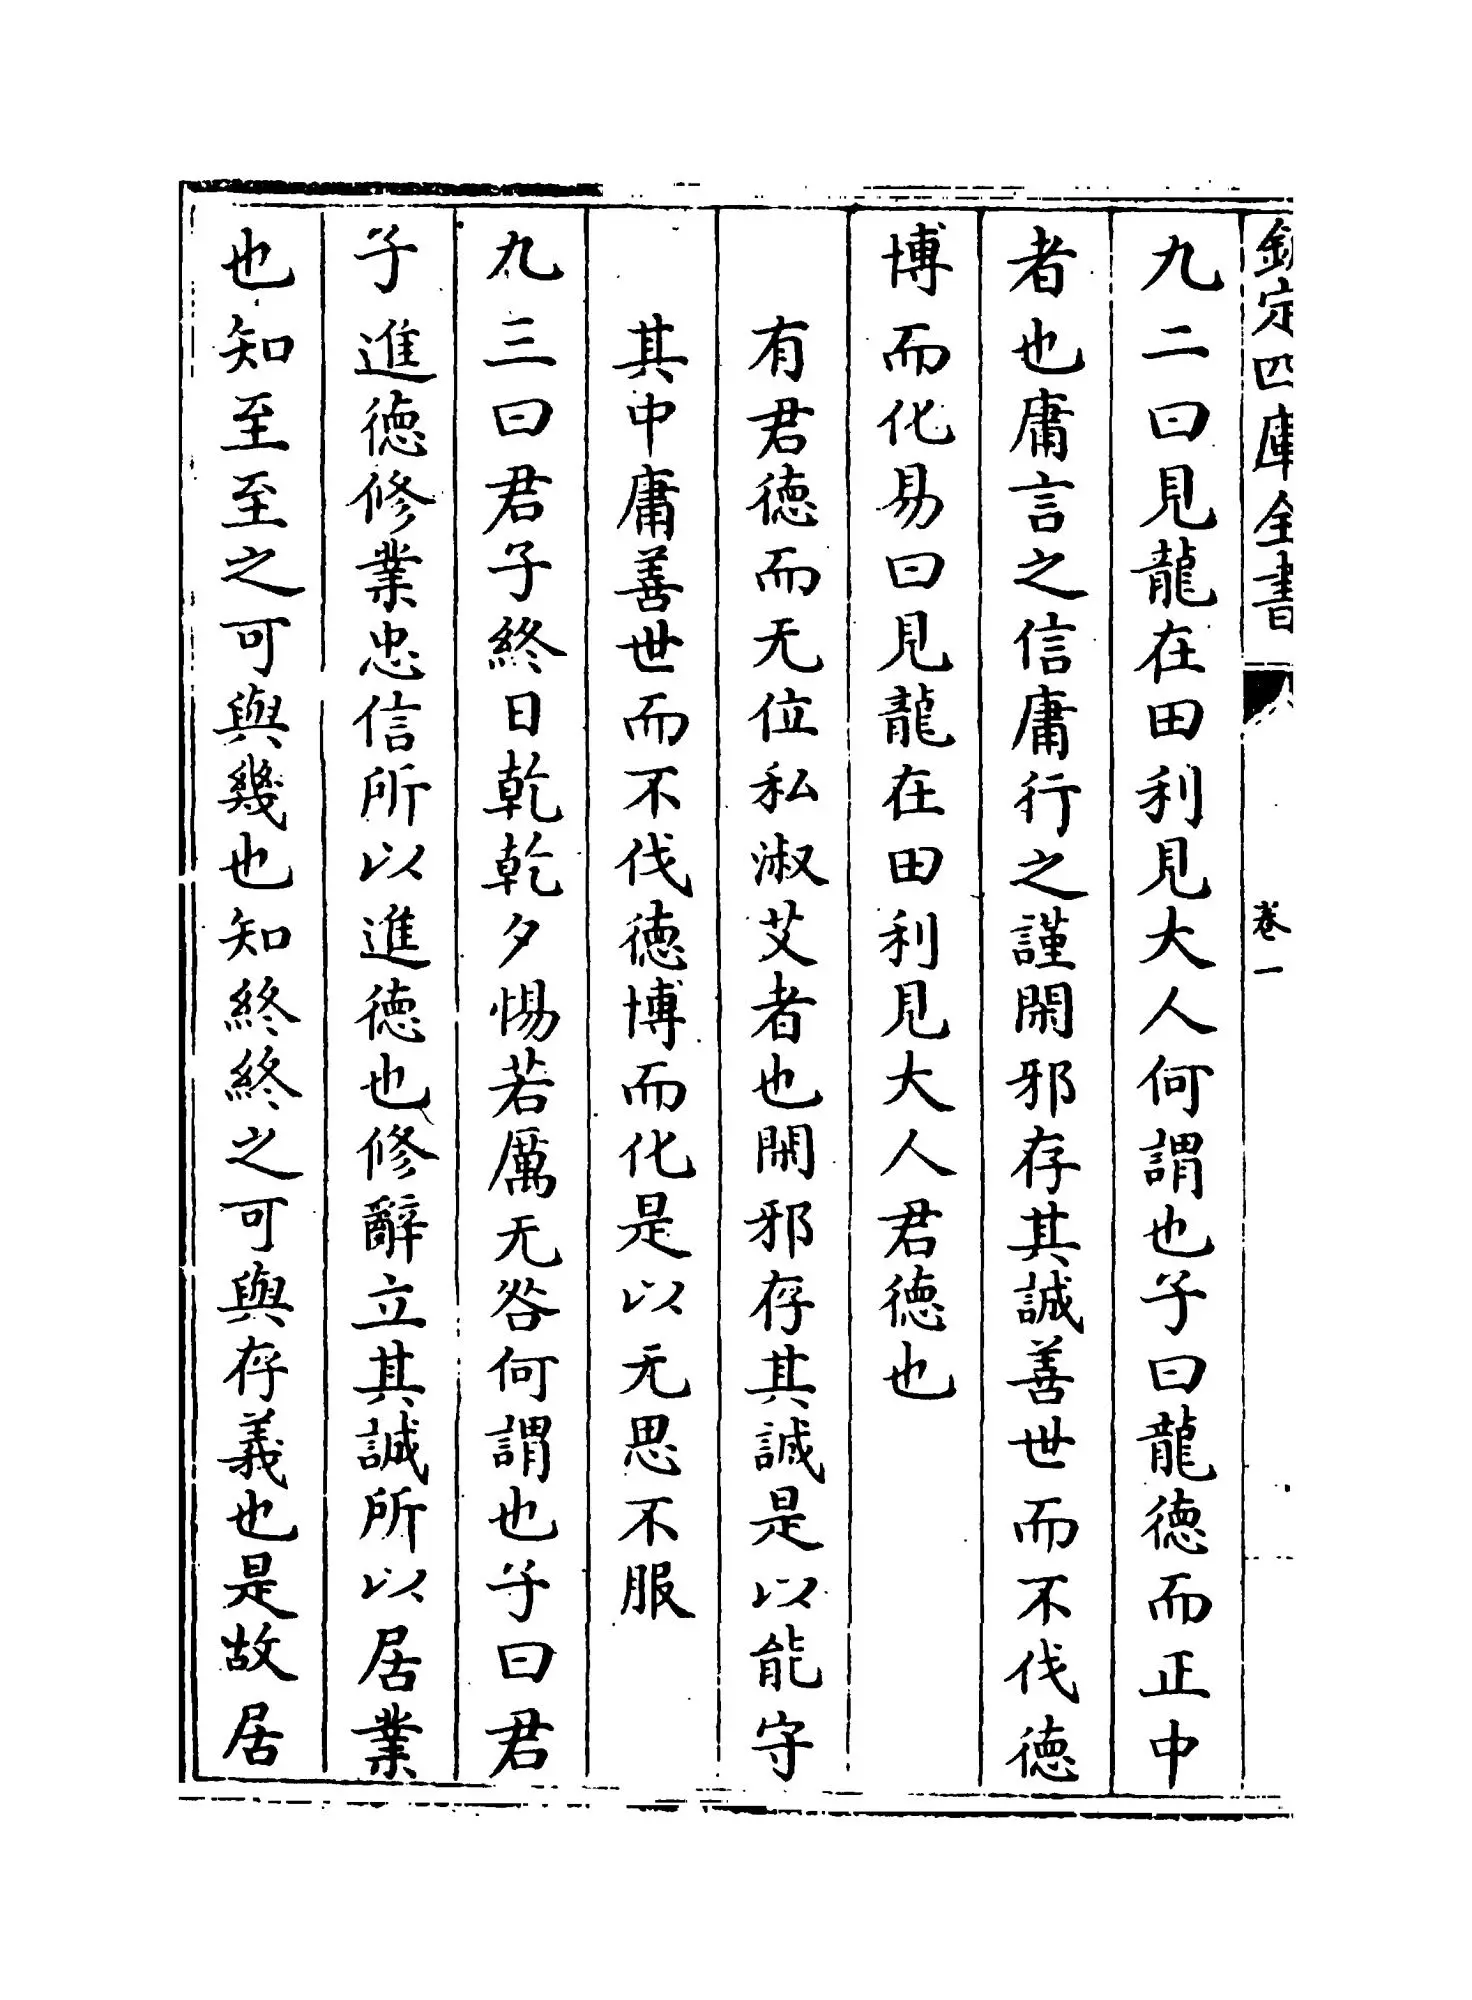 欽定四庫全書
卷一
九二曰見龍在田利見大人何謂也子曰龍德而正中
者也庸言之信庸行之謹閑邪存其誠善世而不伐德
博而化易曰見龍在田利見大人君德也
有君德而无位私淑艾者也閑邪存其誠是以能守
其中庸善世而不伐德博而化是以无思不服
九三曰君子終日乾乾夕惕若厲无咎何謂也子曰君
子進德修業忠信所以進德也修辭立其誠所以居業
也知至至之可與幾也知終終之可與存義也是故居